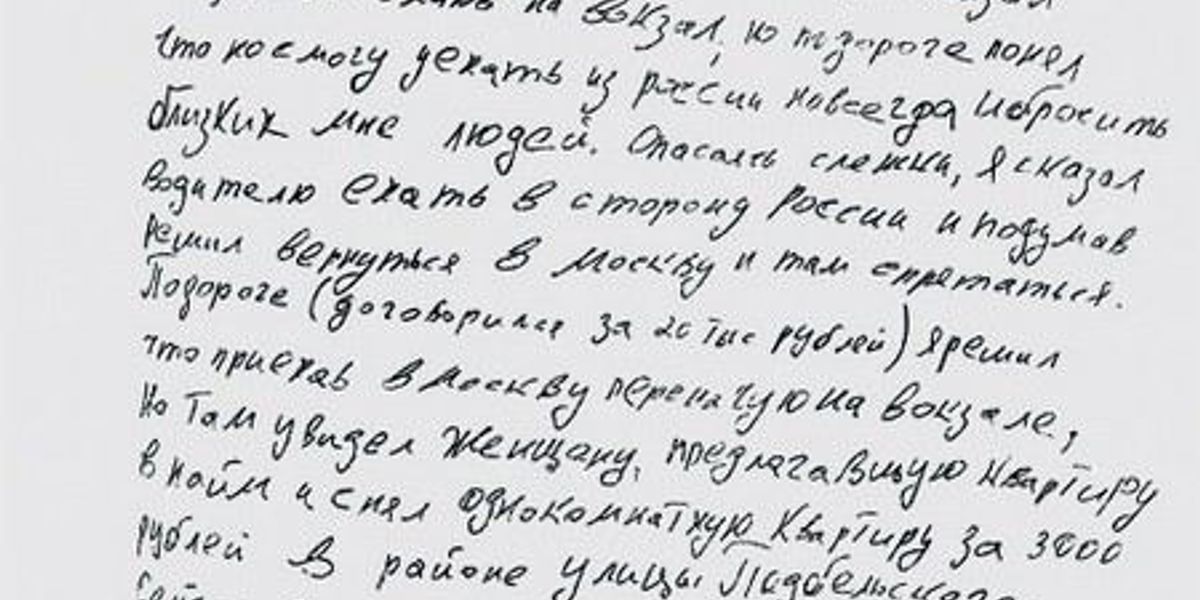 на вокзал, но по дороге понял
что не смогу уехать из России навсегда и бросить
близких мне людей. Опасаясь слежки, я сказал
водителю ехать в сторону России и подумав
решил вернуться в Москву и там спрятаться.
По дороге (договорился за 20 тыс рублей) я решил
что приехав в Москву переначую на вокзале,
Но там увидел женщину, предлагавшую квартиру
в найм и снял однокомнатную квартиру за 3000
рублей в районе улицы Подбельского